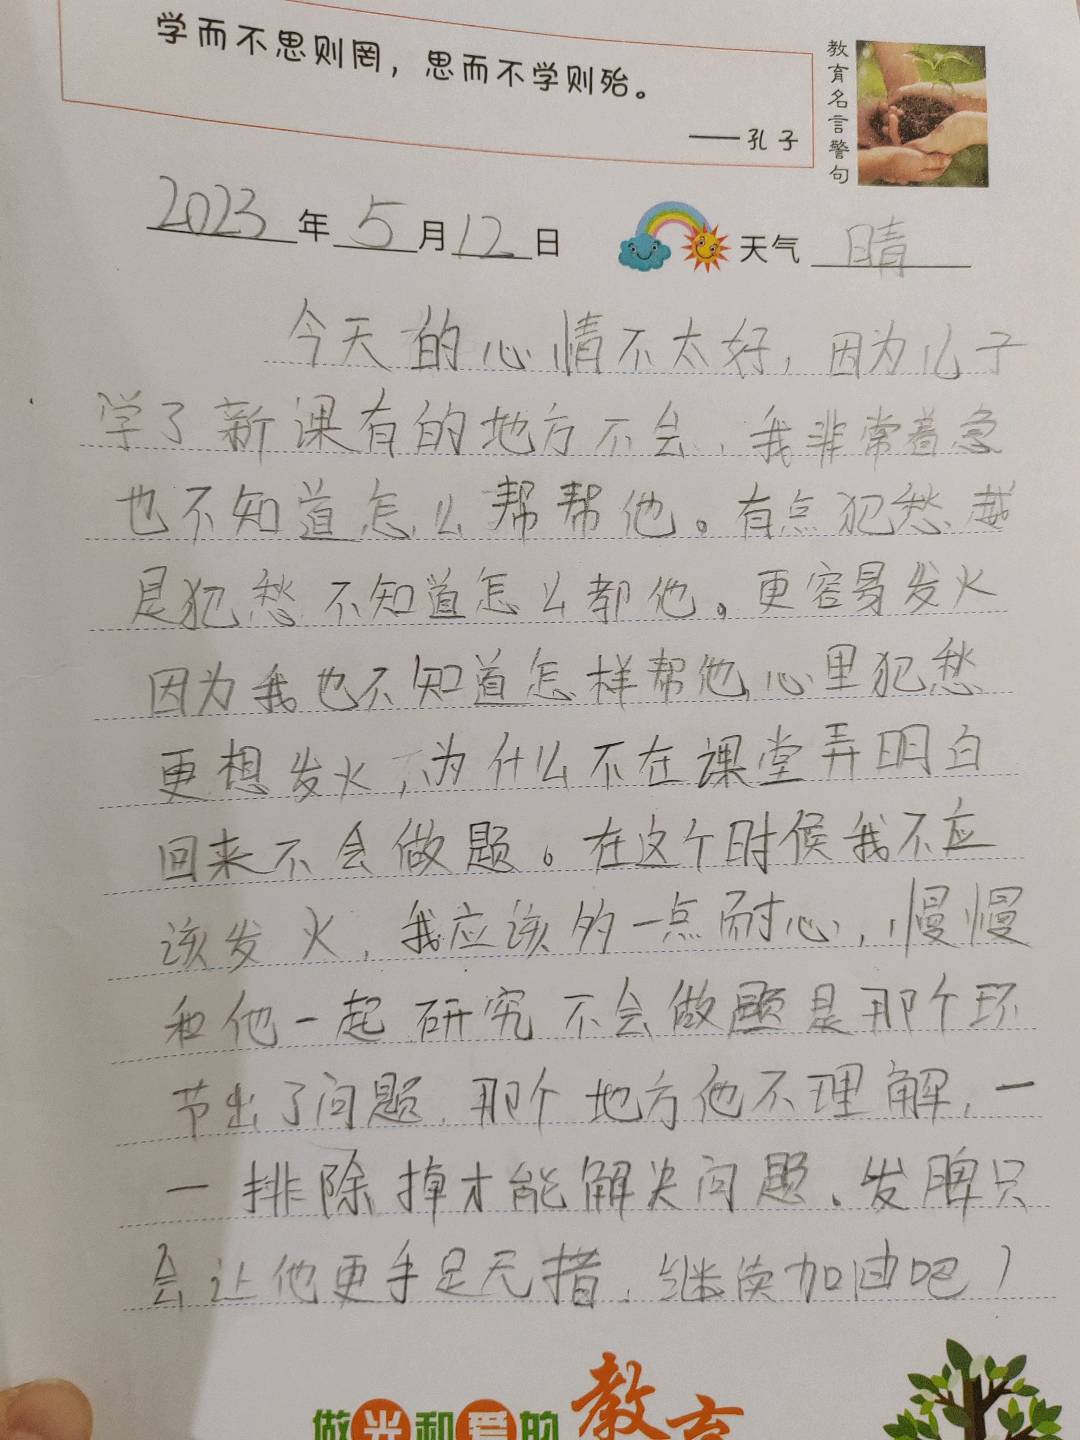 学而不思则罔，思而不学则殆。
——孔子
教育名言警句
2023年5月12日 天气 晴
今天的心情不太好，因为儿子
学了新课有的地方不会，我非常着急
也不知道怎么帮帮他。有点犯愁、越
是犯愁不知道怎么帮他。更容易发火
因为我也不知道怎样帮他，心里犯愁
更想发火，为什么不在课堂弄明白
回来不会做题。在这个时候我不应
该发火，我应该多一点耐心，慢慢
和他一起研究不会做题是那个环
节出了问题，那个地方他不理解，一
一排除掉才能解决问题、发脾只
会让他更手足无措，继续加油吧）
做光和爱的教育